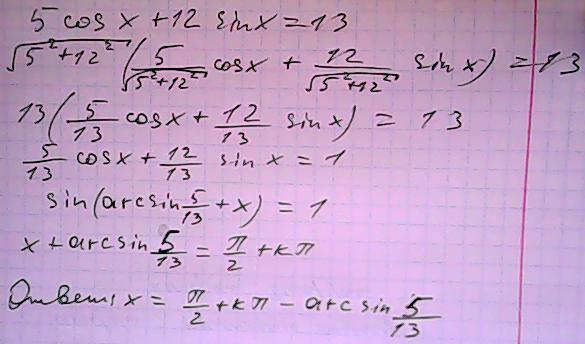 5 cos x + 12 sin x = 13
√(5² + 12²) (5/√(5² + 12²) cos x + 12/√(5² + 12²) sin x) = 13
13 (5/13 cos x + 12/13 sin x) = 13
5/13 cos x + 12/13 sin x = 1
sin(arcsin 5/13 + x) = 1
x + arcsin 5/13 = π/2 + кπ
Ответ: x = π/2 + кπ - arcsin 5/13